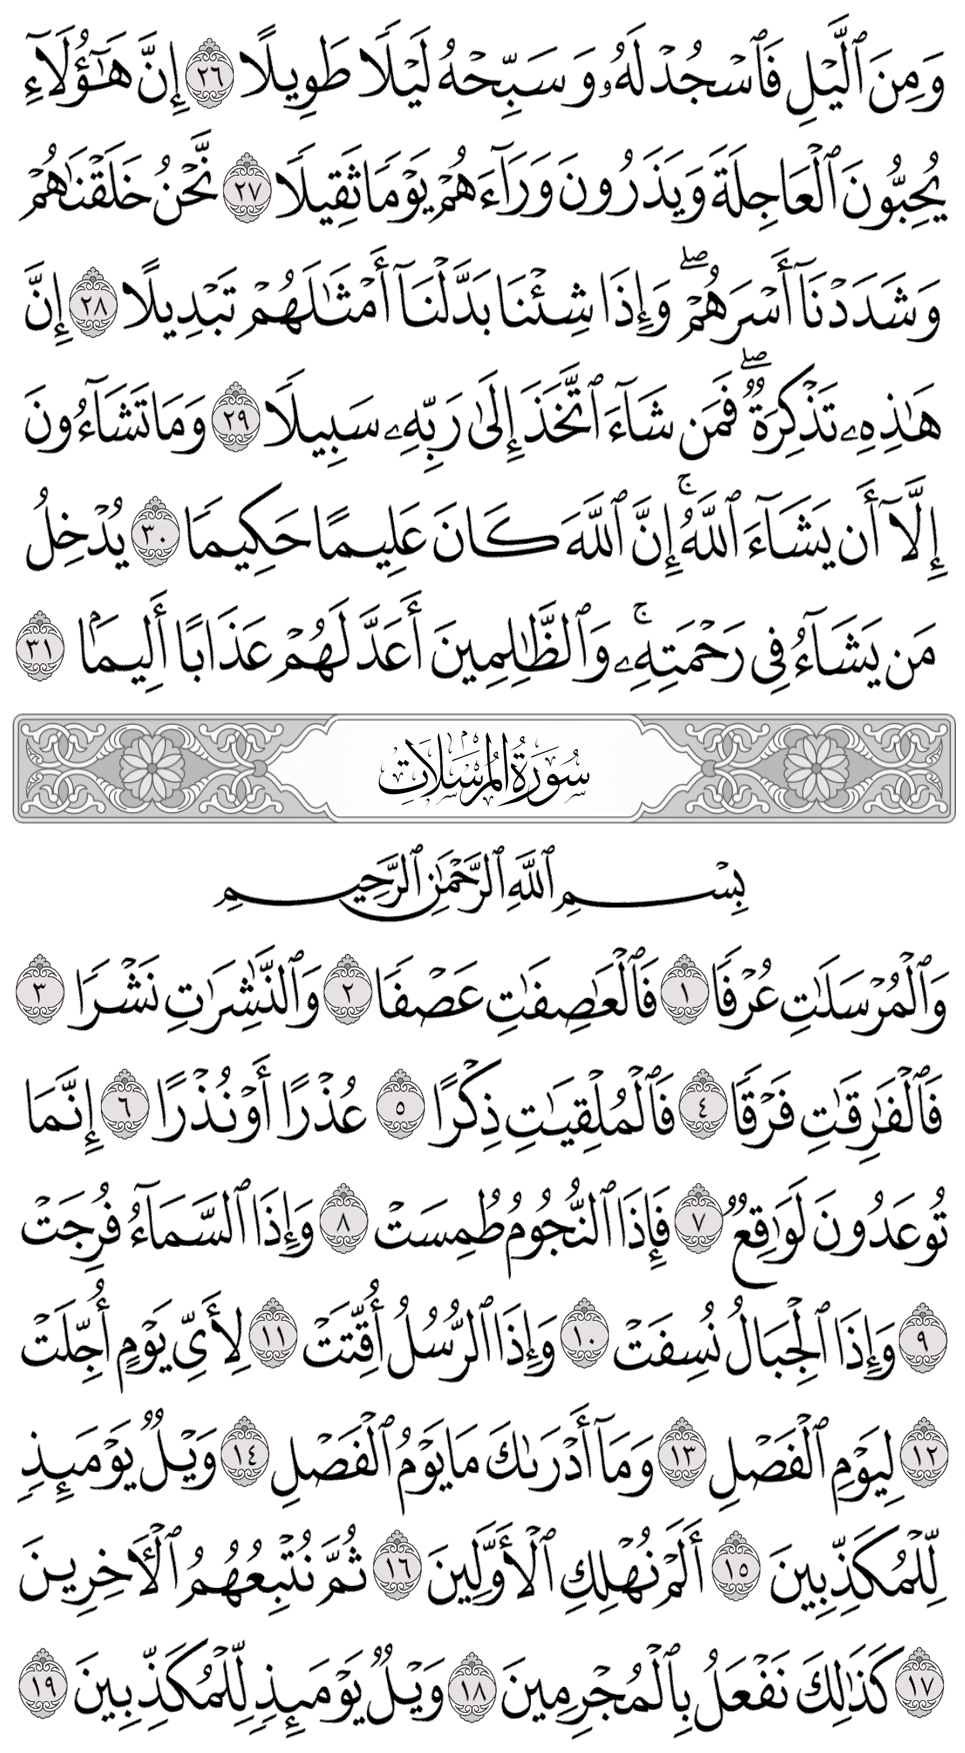 وَمِنَ ٱلَّيۡلِ فَٱسۡجُدۡ لَهُۥ وَسَبِّحۡهُ لَيۡلٗا طَوِيلًا ٢٦ إِنَّ هَـٰٓؤُلَآءِ
يُحِبُّونَ ٱلۡعَاجِلَةَ وَيَذَرُونَ وَرَآءَهُمۡ يَوۡمٗا ثَقِيلٗا ٢٧ نَّحۡنُ خَلَقۡنَٰهُمۡ
وَشَدَدۡنَآ أَسۡرَهُمۡۖ وَإِذَا شِئۡنَا بَدَّلۡنَآ أَمۡثَٰلَهُمۡ تَبۡدِيلًا ٢٨ إِنَّ
هَٰذِهِۦ تَذۡكِرَةٞۖ فَمَن شَآءَ ٱتَّخَذَ إِلَىٰ رَبِّهِۦ سَبِيلٗا ٢٩ وَمَا تَشَآءُونَ
إِلَّآ أَن يَشَآءَ ٱللَّهُۚ إِنَّ ٱللَّهَ كَانَ عَلِيمًا حَكِيمٗا ٣٠ يُدۡخِلُ
مَن يَشَآءُ فِي رَحۡمَتِهِۦۚ وَٱلظَّٰلِمِينَ أَعَدَّ لَهُمۡ عَذَابًا أَلِيمَۢا ٣١
سُورَةُ المُرۡسَلَاتِ
بِسۡمِ ٱللَّهِ ٱلرَّحۡمَٰنِ ٱلرَّحِيمِ
وَٱلۡمُرۡسَلَٰتِ عُرۡفٗا ١ فَٱلۡعَٰصِفَٰتِ عَصۡفٗا ٢ وَٱلنَّٰشِرَٰتِ نَشۡرٗا ٣
فَٱلۡفَٰرِقَٰتِ فَرۡقٗا ٤ فَٱلۡمُلۡقِيَٰتِ ذِكۡرًا ٥ عُذۡرًا أَوۡ نُذۡرًا ٦ إِنَّمَا
تُوعَدُونَ لَوَٰقِعٞ ٧ فَإِذَا ٱلنُّجُومُ طُمِسَتۡ ٨ وَإِذَا ٱلسَّمَآءُ فُرِجَتۡ
٩ وَإِذَا ٱلۡجِبَالُ نُسِفَتۡ ١٠ وَإِذَا ٱلرُّسُلُ أُقِّتَتۡ ١١ لِأَيِّ يَوۡمٍ أُجِّلَتۡ
١٢ لِيَوۡمِ ٱلۡفَصۡلِ ١٣ وَمَآ أَدۡرَىٰكَ مَا يَوۡمُ ٱلۡفَصۡلِ ١٤ وَيۡلٞ يَوۡمَئِذٖ
لِّلۡمُكَذِّبِينَ ١٥ أَلَمۡ نُهۡلِكِ ٱلۡأَوَّلِينَ ١٦ ثُمَّ نُتۡبِعُهُمُ ٱلۡأٓخِرِينَ
١٧ كَذَٰلِكَ نَفۡعَلُ بِٱلۡمُجۡرِمِينَ ١٨ وَيۡلٞ يَوۡمَئِذٖ لِّلۡمُكَذِّبِينَ ١٩